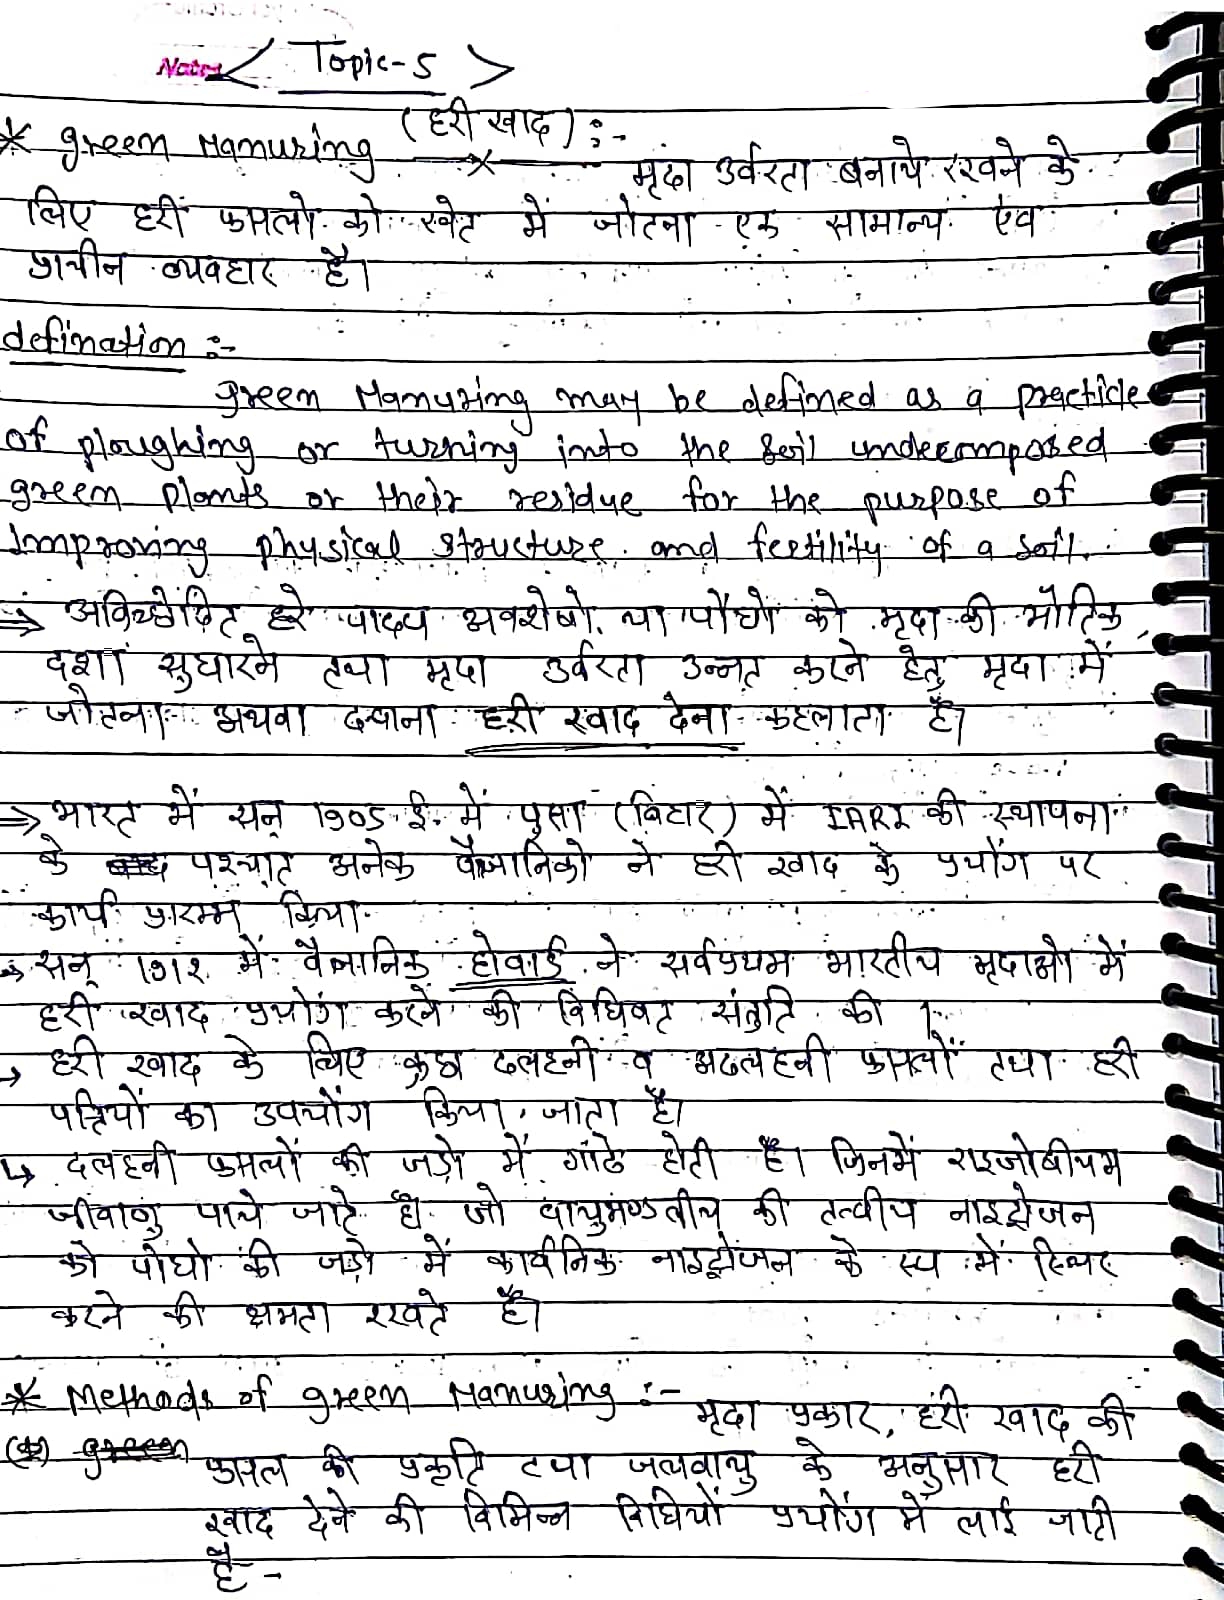 Notes < Topic-5 >
* green Manuring (हरी खाद) :-
मृदा उर्वरता बनाये रखने के
लिए हरी फसलो को खेत में जोतना एक सामान्य एंव
प्राचीन व्यवहार है।
defination :-
green Manuring may be defined as a practicle
of ploughing or turning into the soil undecomposed
green plants or their residue for the purpose of
Improving physical structure and fertility of a soil.
⇒ अविच्छेदित हरे पादप अवशेषो या पौधों को मृदा की भौतिक
दशा सुधारने तथा मृदा उर्वरता उन्नत करने हेतु मृदा में
जोतना अथवा दबाना हरी खाद देना कहलाता है।
⇒ भारत में सन् 1905 ई. में पुसा (बिहार) में IARI की स्थापना
के पश्चात अनेक वैज्ञानिको ने हरी खाद के प्रयोंग पर
कार्य प्रारम्भ किया.
→ सन् 1912 में वैज्ञानिक होवार्ड ने सर्वप्रथम भारतीय मृदाओ में
हरी खाद प्रयोंग करने की विधिवत संतुति की ।
→ हरी खाद के लिए कुछ दलहनी व अदलहनी फसलों तथा हरी
पत्तियों का उपयोंग किया जाता है।
↳ दलहनी फसलों की जड़ो में गांठे होती है। जिनमें राइजोबीयम
जीवाणु पाये जाते है जो वायुमण्डलीय की तत्वीय नाइट्रोजन
को पोधो की जड़ो में कार्बनिक नाइट्रोजन के रूप में स्थिर
करने की क्षमता रखते है।
* Methods of green Manuring :- मृदा प्रकार, हरी खाद की
(क) green फसल की प्रकृति तथा जलवायु के अनुसार हरी
खाद देने की विभिन्न विधियों प्रयोंग में लाई जाती
है -